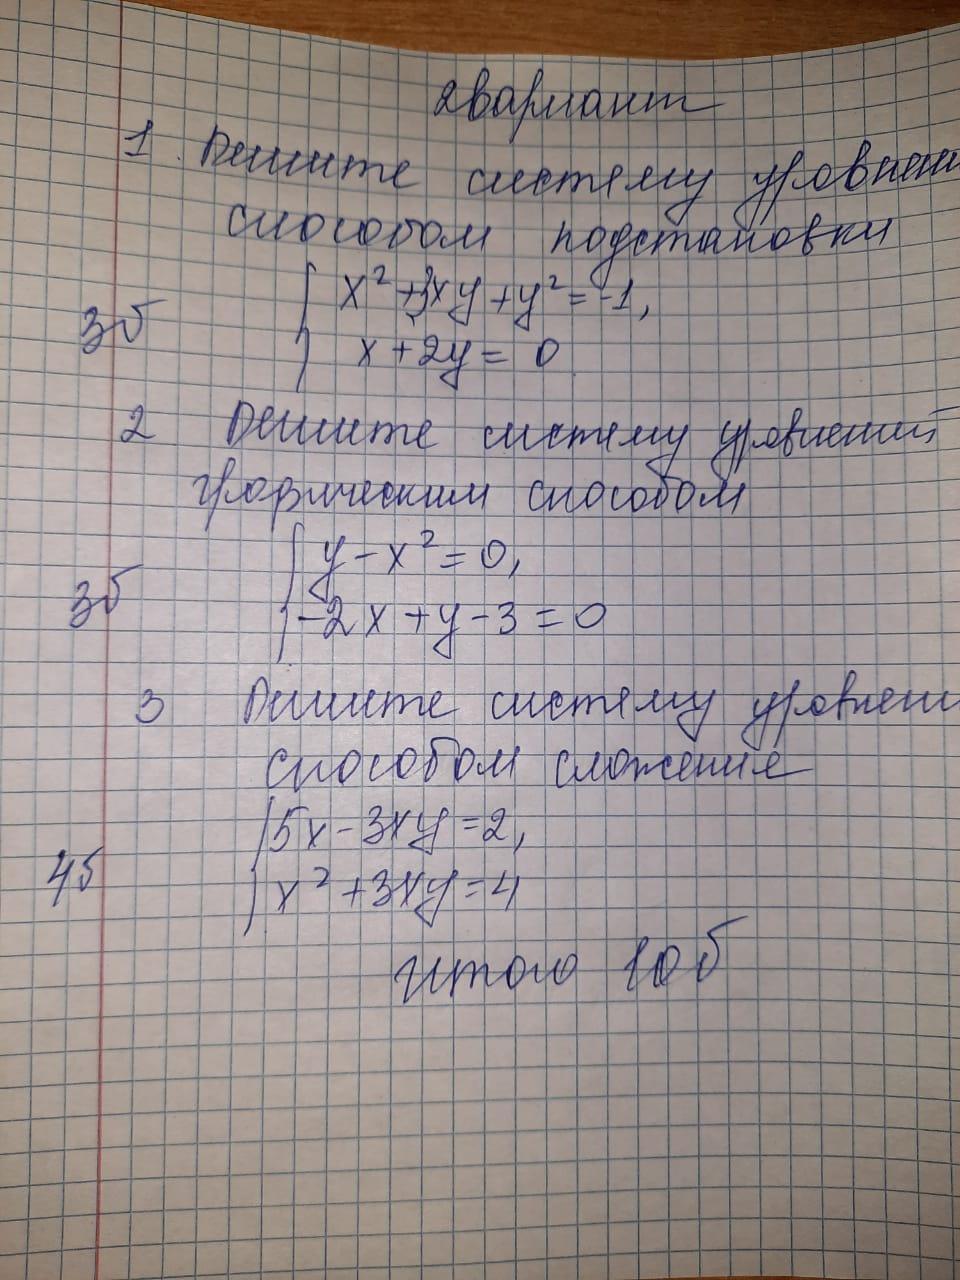 2 вариант
1. Решите систему уровнени
способом подстановки
x² + 3xy + y² = -1,
3б
x + 2y = 0
2 Решите систему уровнений
графическим способом
y - x² = 0,
3б
-2x + y - 3 = 0
3 Решите систему уровнени
способом сложение
5x - 3xy = 2,
4б
x² + 3xy = 4
Итого 10б